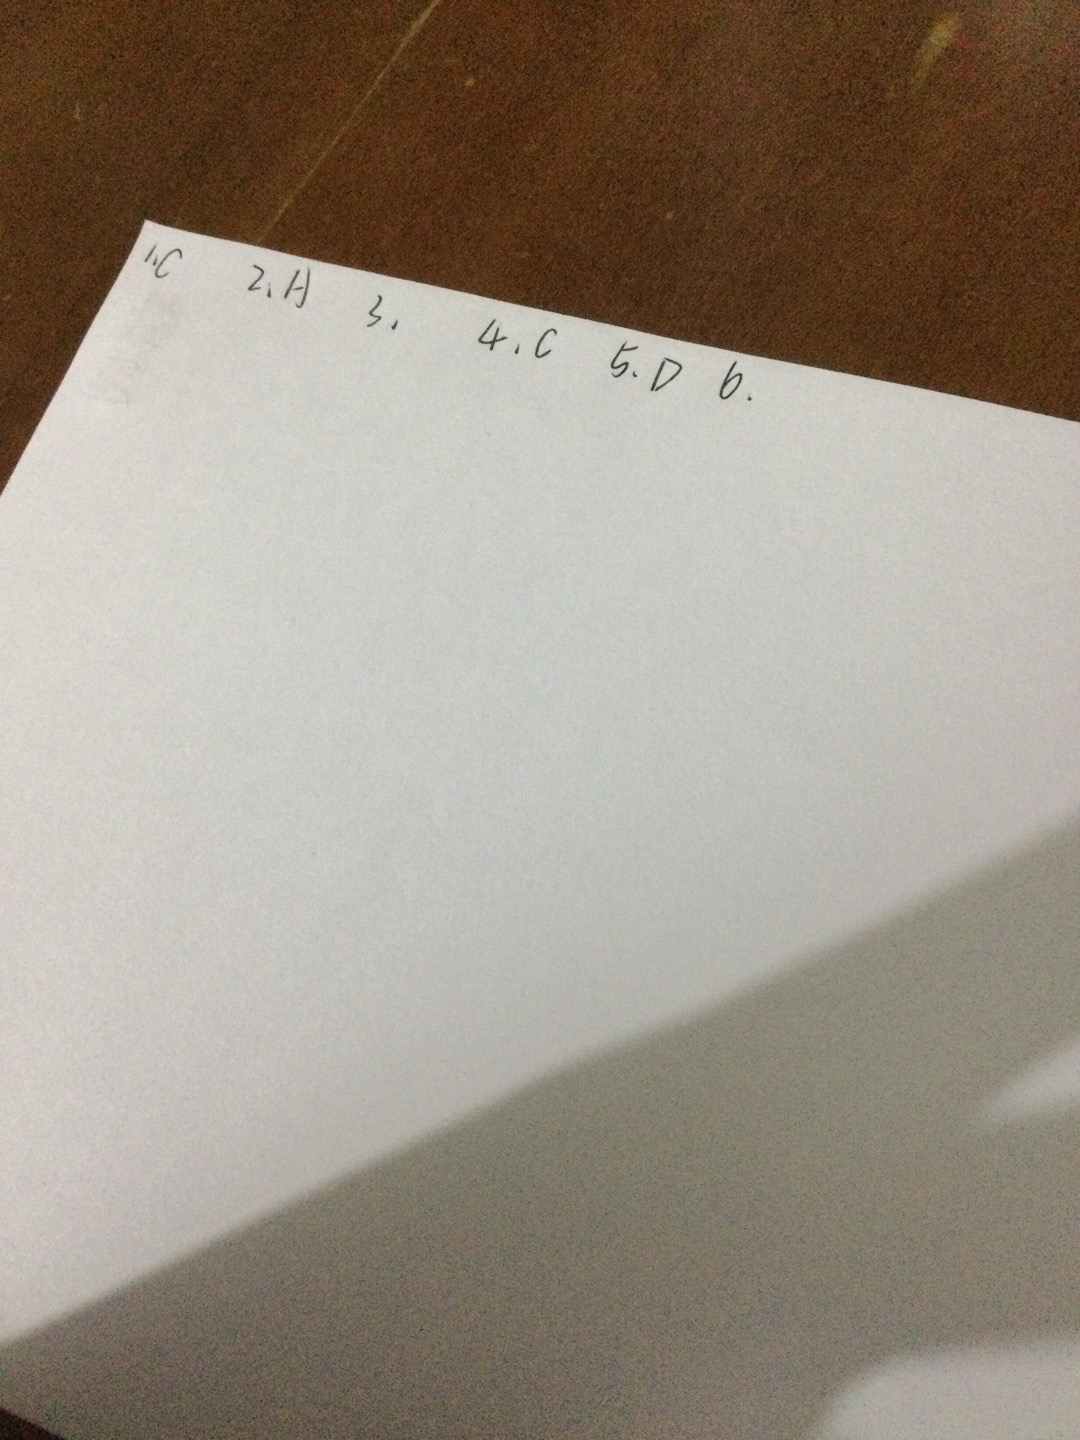 1.C 2.A 3. 4.C 5.D 6.